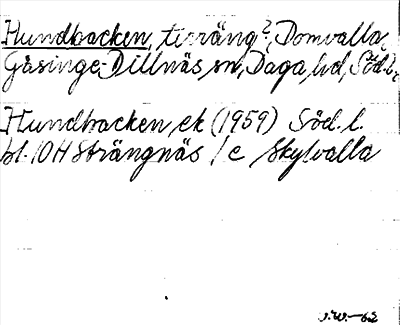 Hundbacken, terräng?, Domvalla,
Gåsinge-Dillnäs sn, Daga hd, Södl.
Hundbacken ek (1959) Söd. l.
bl. 10H Strängnäs / c Skylvalla
J.W.-62